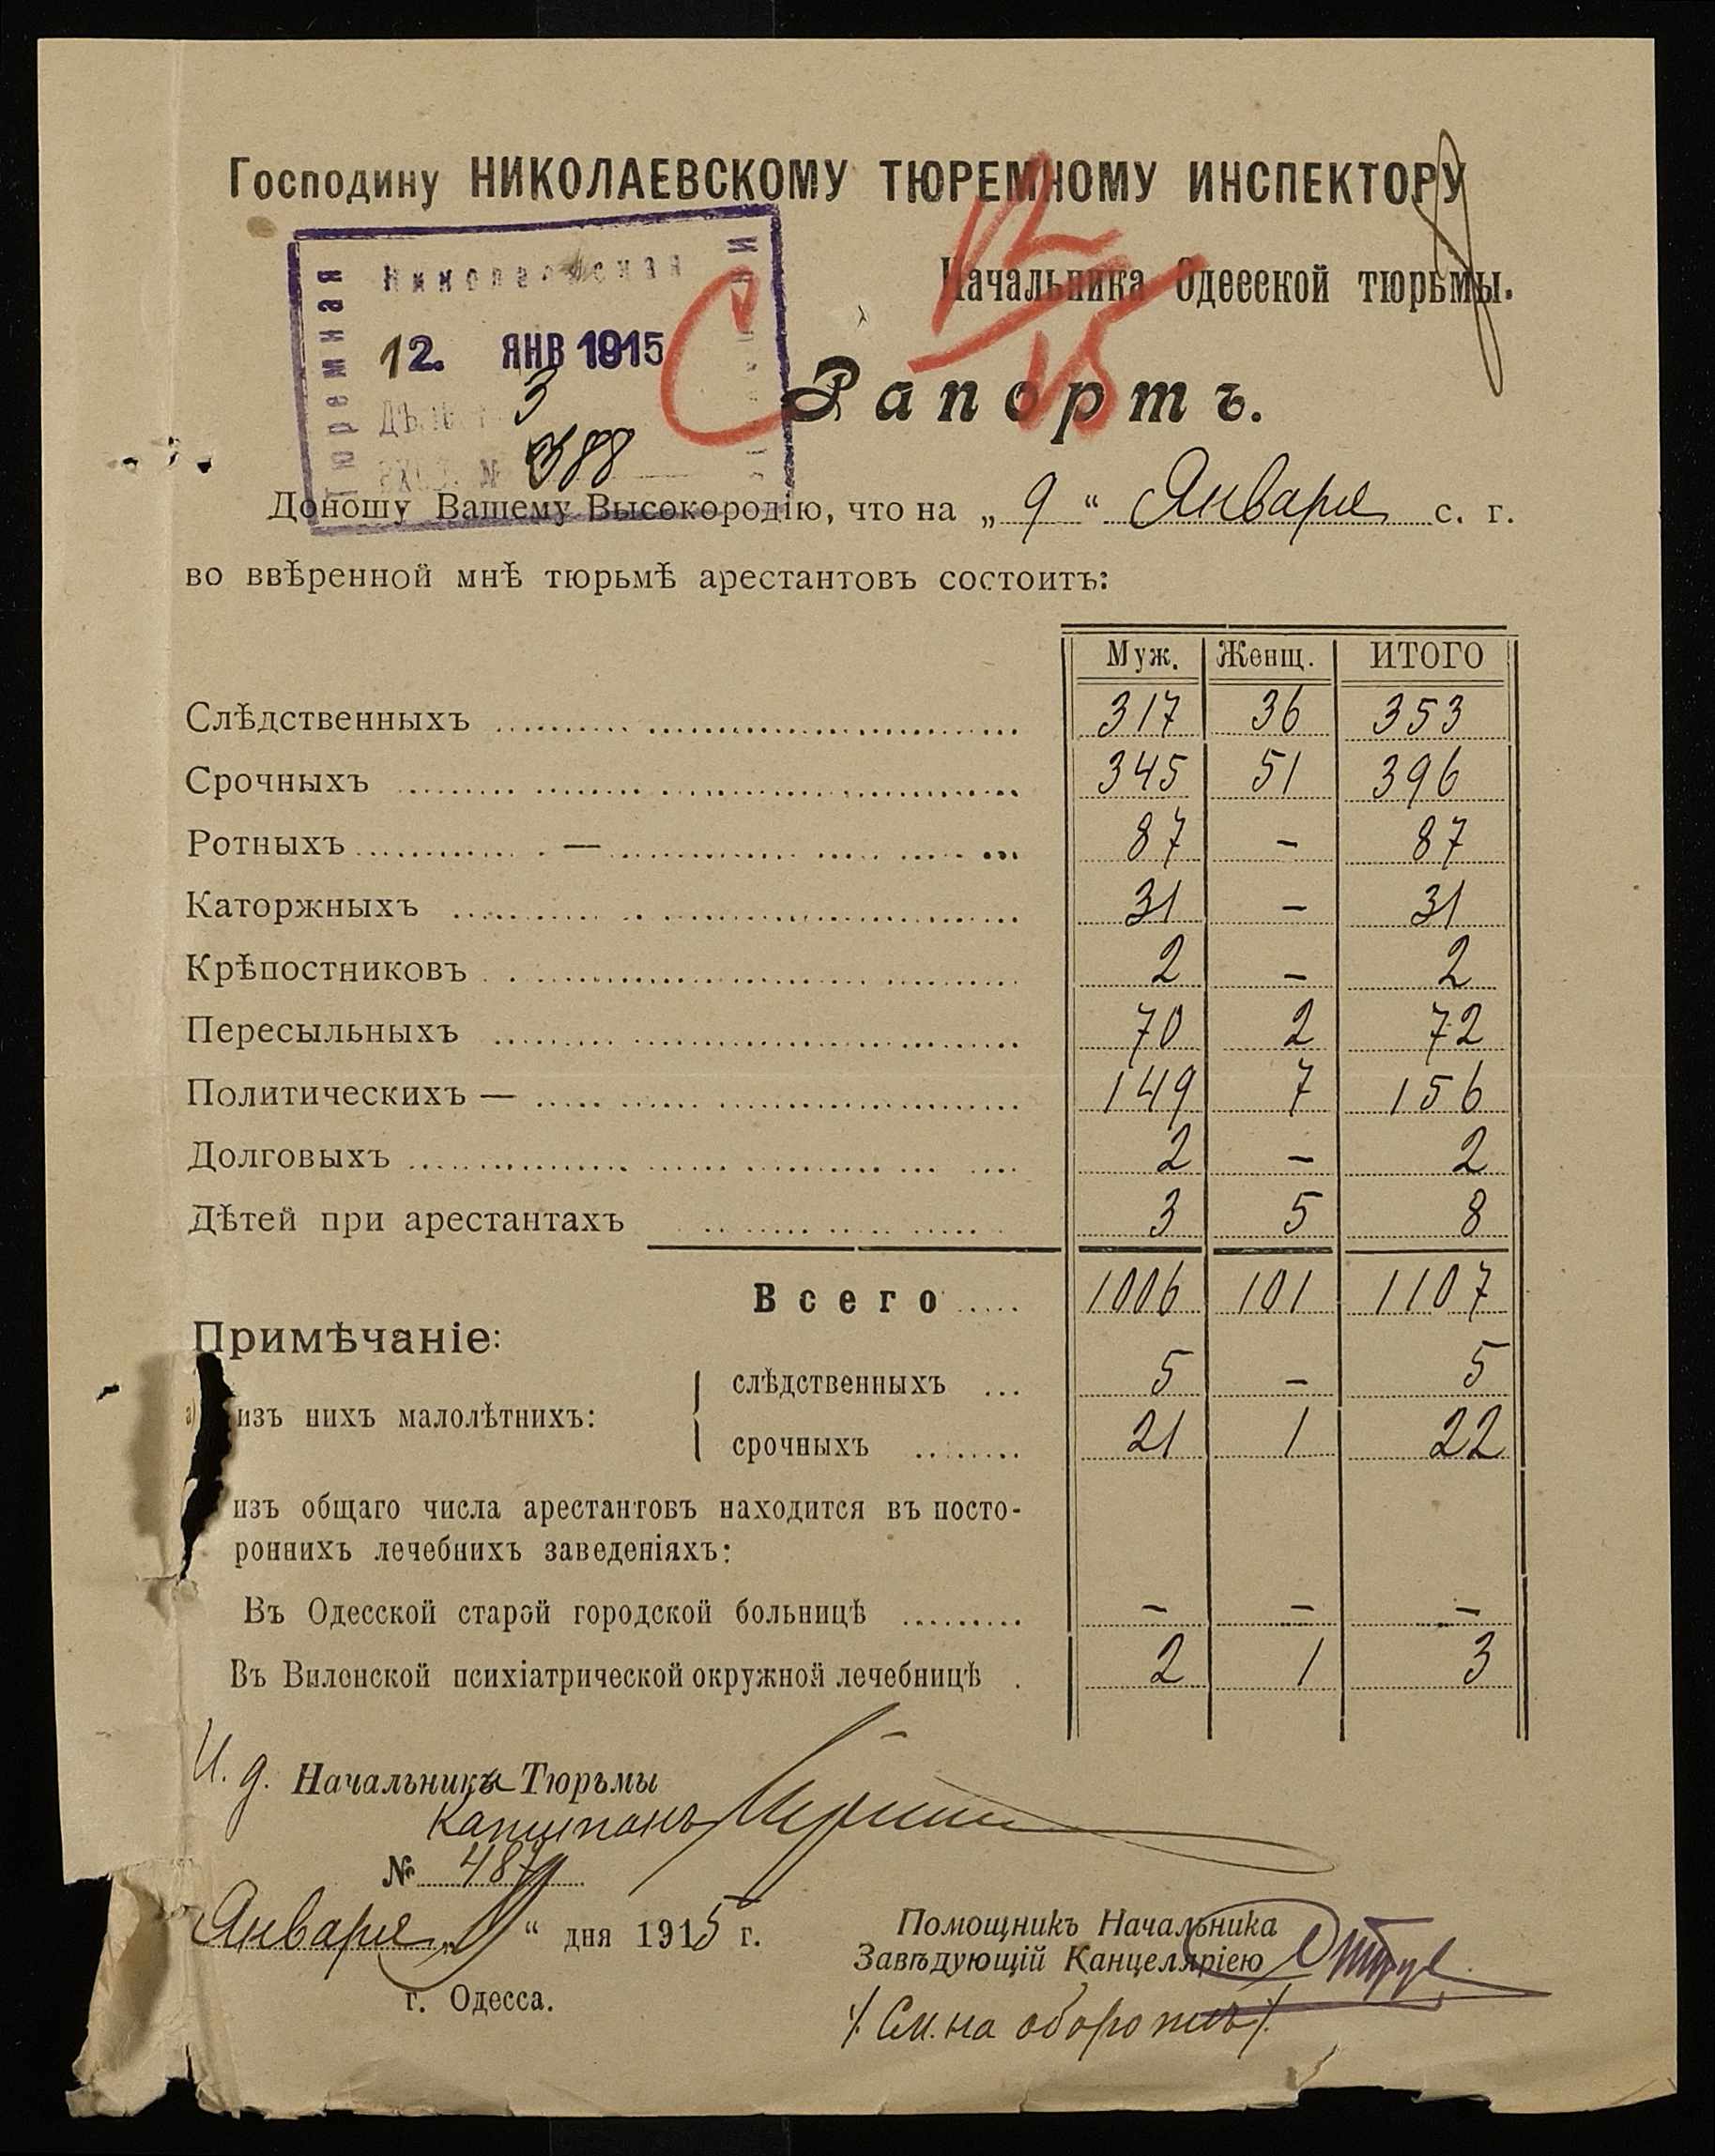 Господину НИКОЛАЕВСКОМУ ТЮРЕМНОМУ ИНСПЕКТОРУ
Начальника Одесской тюрьмы.
Николаевская
Тюремная
12. ЯНВ 1915
3
388
С 12/15
Рапортъ.
Доношу Вашему Высокородію, что на „ 9 “ Января с. г.
во ввѣренной мнѣ тюрьмѣ арестантовъ состоитъ:
Муж. Женщ. ИТОГО
Слѣдственныхъ 317 36 353
Срочныхъ 345 51 396
Ротныхъ — 87 - 87
Каторжныхъ 31 - 31
Крѣпостниковъ 2 - 2
Пересыльныхъ 70 2 72
Политическихъ — 149 7 156
Долговыхъ 2 - 2
Дѣтей при арестантахъ 3 5 8
Всего 1006 101 1107
Примѣчаніе:
слѣдственныхъ 5 - 5
а) изъ нихъ малолѣтнихъ:
срочныхъ 21 1 22
изъ общаго числа арестантовъ находится въ посто-
роннихъ лечебнихъ заведеніяхъ:
Въ Одесской старой городской больницѣ - - -
Въ Виленской психіатрической окружной лечебницѣ 2 1 3
И. д. Начальника Тюрьмы
Капитанъ
№ 487
Января „9“ дня 1915 г.
г. Одесса.
Помощникъ Начальника
Завѣдующій Канцеляріею
/. См. на оборотѣ /.